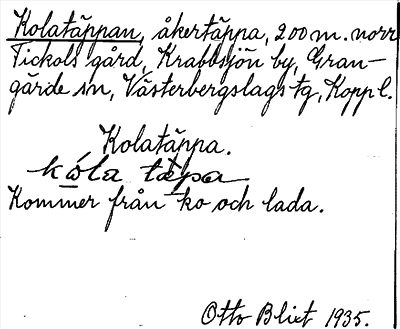 Kolatäppan, åkertäppa, 200 m. norr
Tickols gård, Krabbsjön by, Gran-
gärde sn, Västerbergslags tg, Kopp l.
Kolatäppa.
kóla täpa
Kommer från ko och lada.
Otto Blixt 1935.